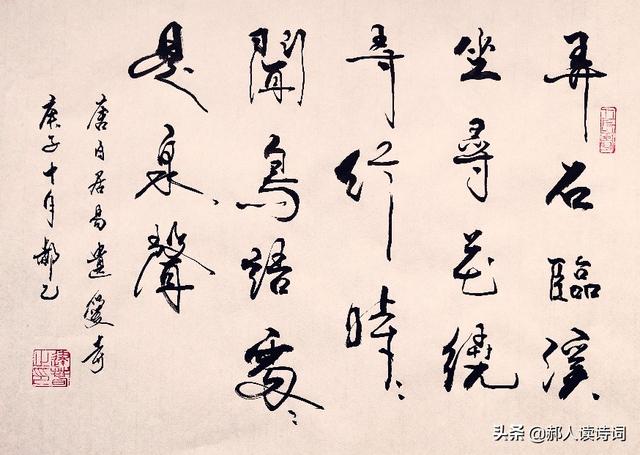 弄石臨溪
坐尋花繞
寺行時〻
聞鳥語處〻
是泉聲
唐白居易遺愛寺
庚子十月郝
头条 @郝人读诗词